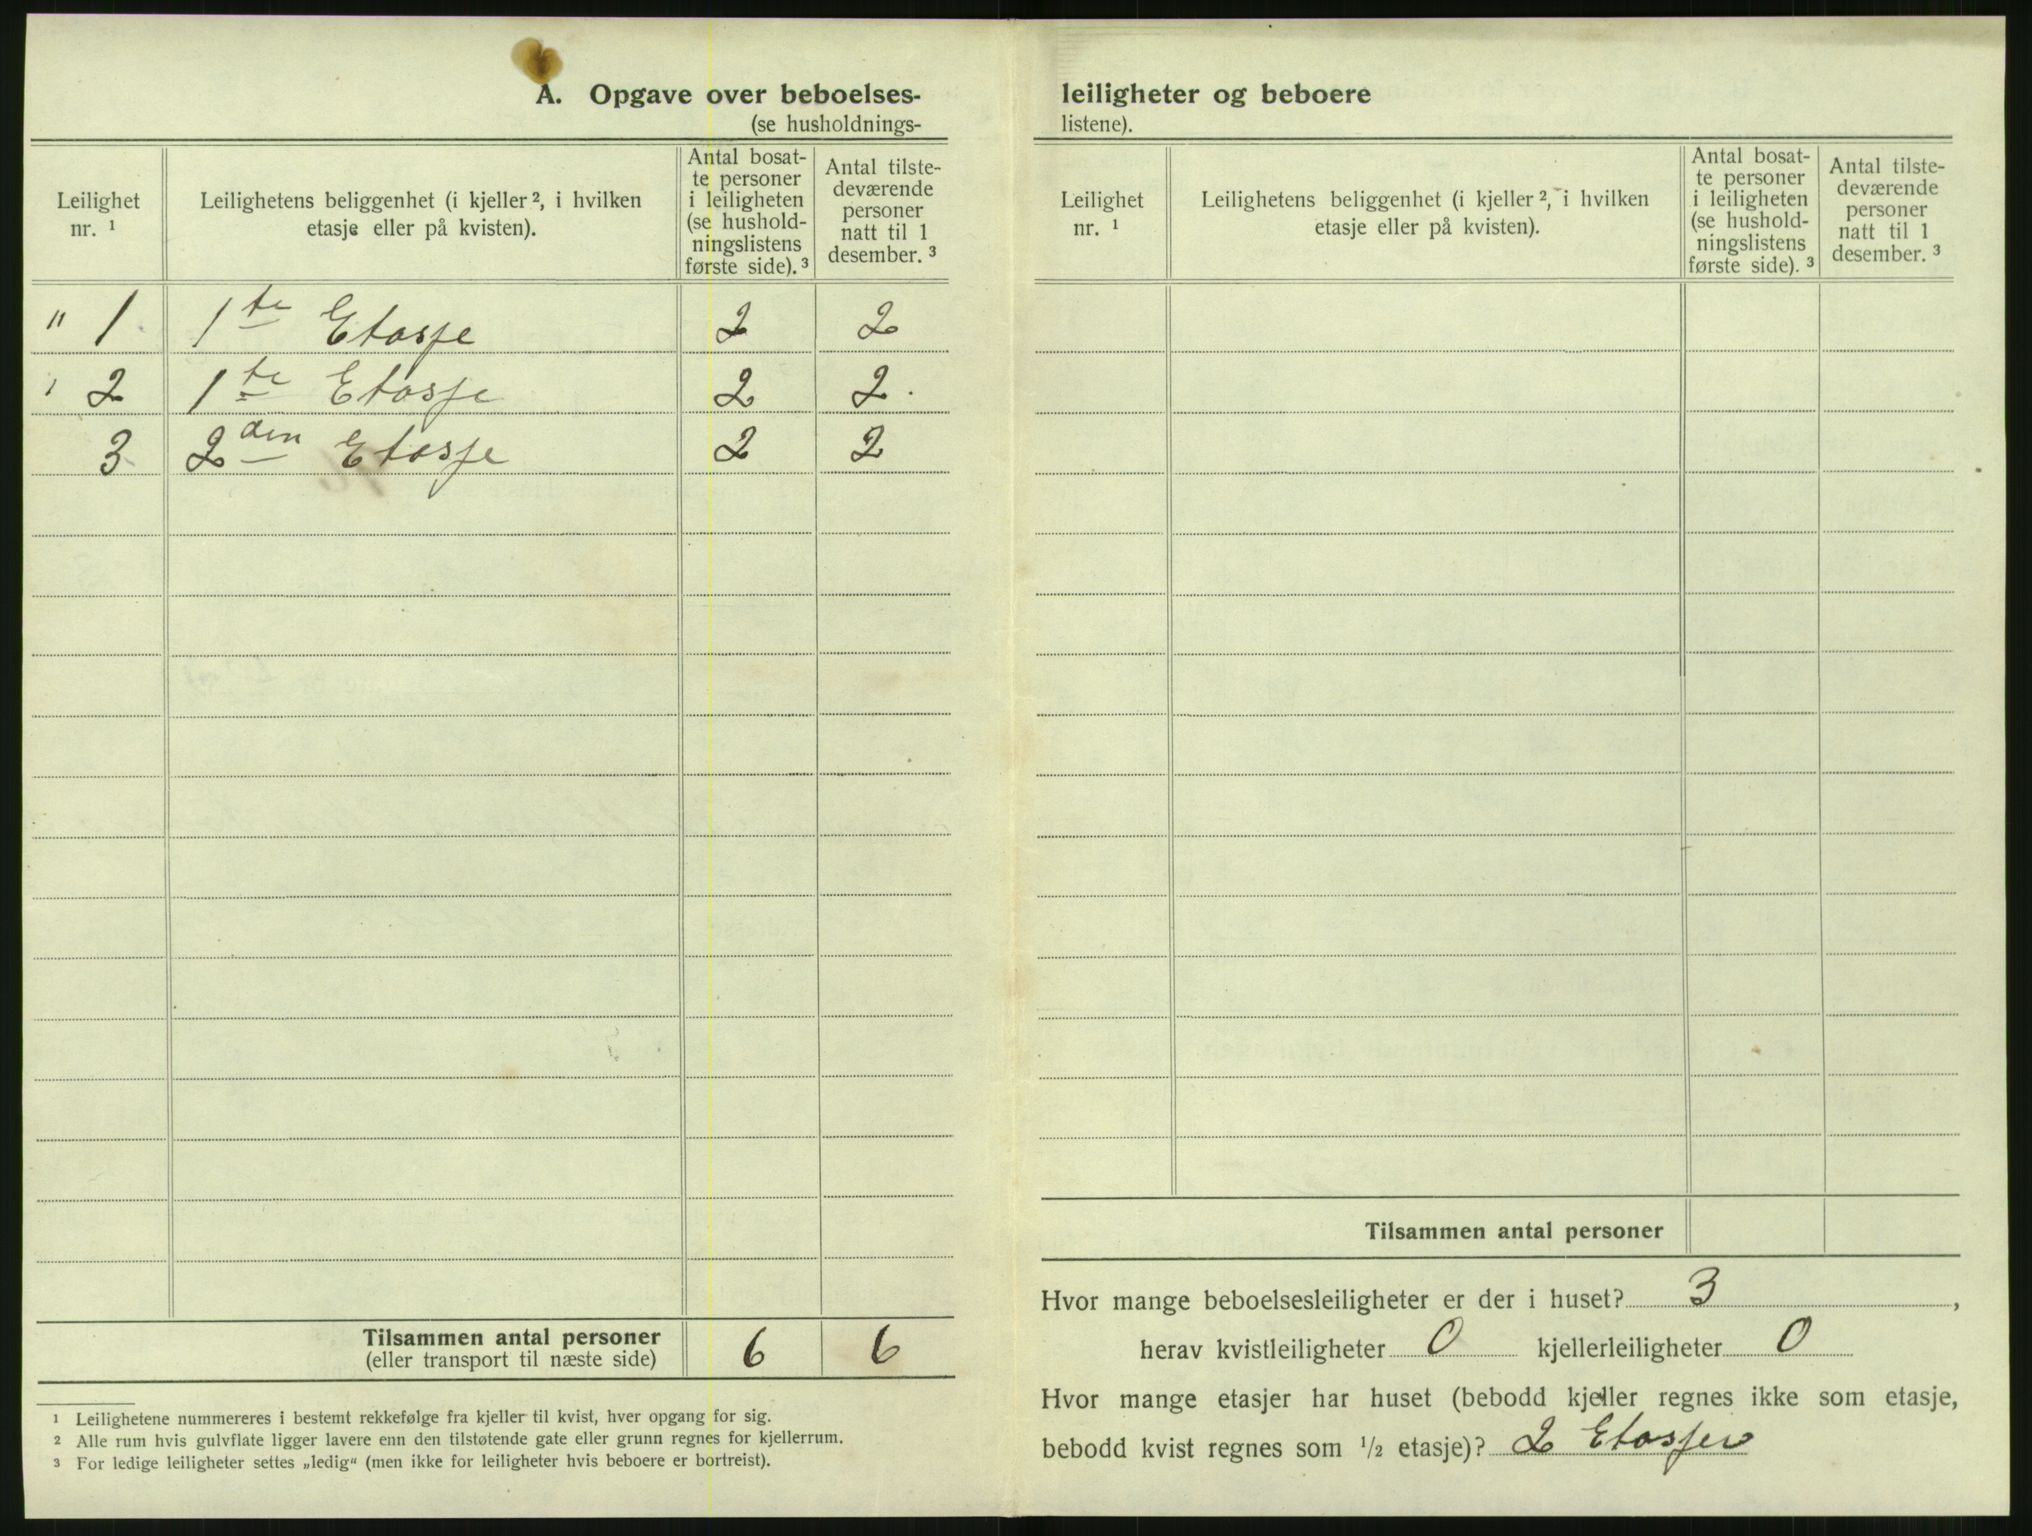 A. Opgave over beboelses-
(se husholdnings-
Leilighet nr. ¹
Leilighetens beliggenhet (i kjeller ², i hvilken etasje eller på kvisten).
Antal bosat-
te personer
i leiligheten
(se hushold-
ningslistens
første side). ³
Antal tilste-
deværende
personer
natt til 1
desember. ³
" 1 1ste Etasje 2 2
2 1ste Etasje 2 2.
3 2den Etasje 2 2
Tilsammen antal personer 6 6
(eller transport til næste side)
¹ Leilighetene nummereres i bestemt rekkefølge fra kjeller til kvist, hver opgang for sig.
² Alle rum hvis gulvflate ligger lavere enn den tilstøtende gate eller grunn regnes for kjellerrum.
³ For ledige leiligheter settes „ledig“ (men ikke for leiligheter hvis beboere er bortreist).
leiligheter og beboere
listene).
Leilighet nr. ¹
Leilighetens beliggenhet (i kjeller ², i hvilken etasje eller på kvisten).
Antal bosat-
te personer
i leiligheten
(se hushold-
ningslistens
første side). ³
Antal tilste-
deværende
personer
natt til 1
desember. ³
Tilsammen antal personer
Hvor mange beboelsesleiligheter er der i huset? 3,
herav kvistleiligheter 0 kjellerleiligheter 0
Hvor mange etasjer har huset (bebodd kjeller regnes ikke som etasje,
bebodd kvist regnes som ½ etasje)? 2 Etasjer